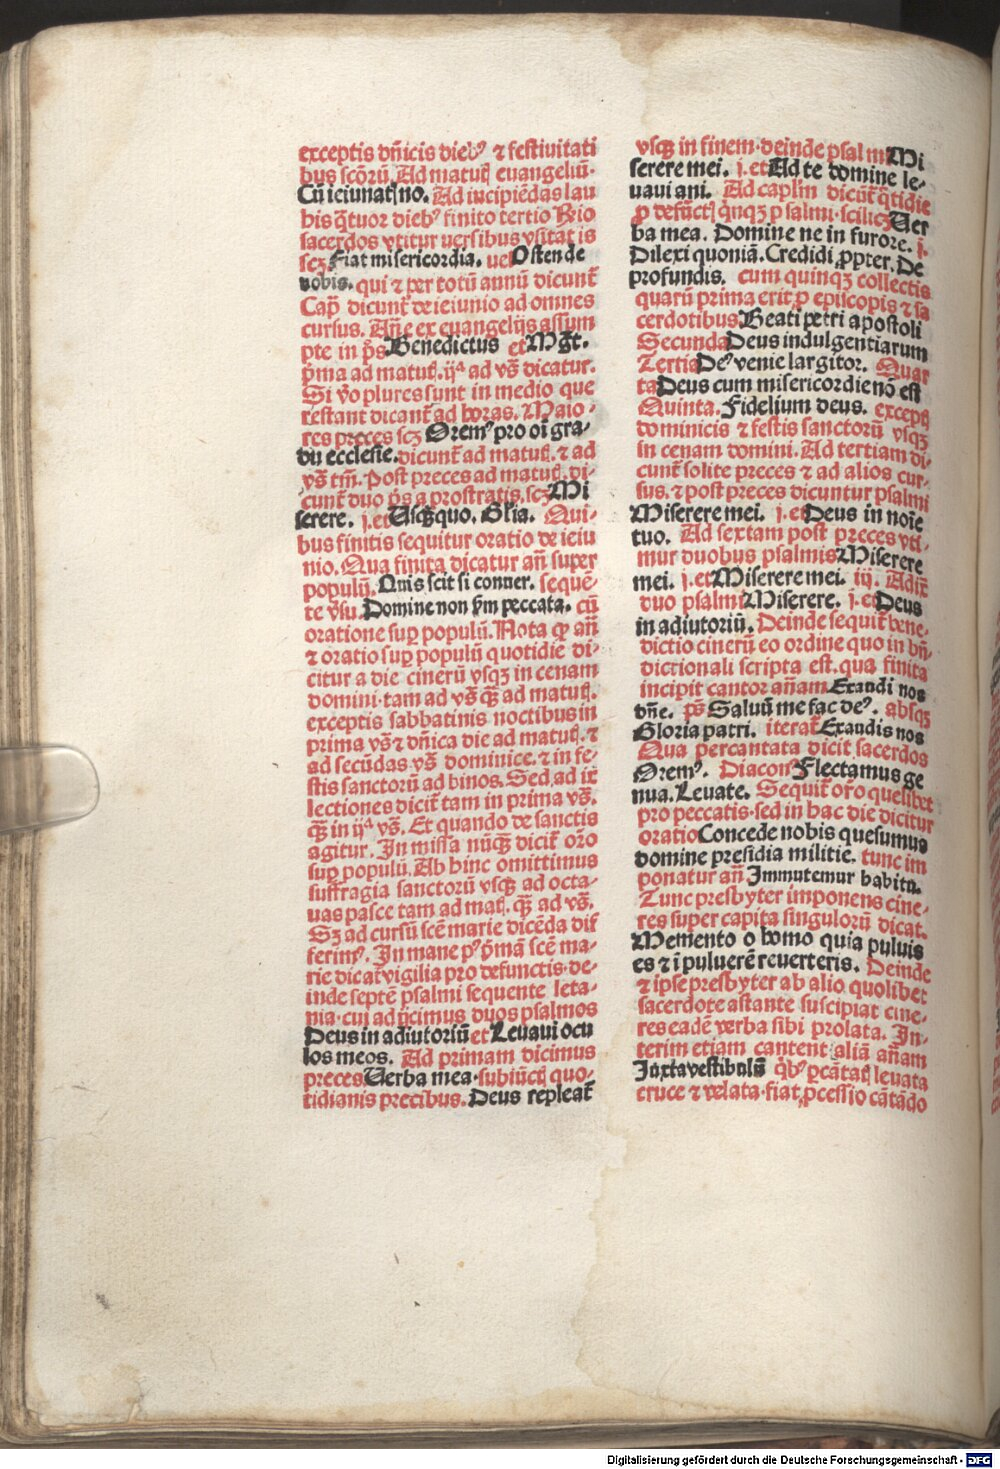 exceptis dn̄icis dieb⁹ ⁊ festiuitati
bus scōrū. Ad matut̄ euangeliū·
Cū ieiunat̄ no. Ad incipiēdas lau
bis q̄tuor dieb⁹ finito tertio Rr̄io
sacerdos vtitur versibus vsitat is
scꝫ Fiat misericordia. uel Ostende
vobis. qui ⁊ per totū annū dicunt̄
Cap̄ dicunt̄ de ieiunio ad omnes
cursus. An̄e ex euangelijs assum
pte in p̄s Benedictus et Mgt̄.
p̄ma ad matut̄. ijᵃ ad vs̄ dicatur.
Si v̄o plures sunt in medio que
restant dicant̄ ad horas. Maio⸗
res preces scꝫ Orem⁹ pro oī gra⸗
du ecclesie. dicunt̄ ad matut̄. ⁊ ad
vs̄ tm̄. Post preces ad matut̄. di⸗
cunt̄ duo p̄s a prostratis. scꝫ Mi
serere. j. et Usq̄quo. Gl̄ia. Qui⸗
bus finitis sequitur oratio de ieiu
nio. Qua finita dicatur an̄ super
populū. Quis scit si conuer. sequē⸗
te v̄su. Domine non s̄m peccata. cū
oratione sup̱ populū. Nota ꝙ an̄
⁊ oratio sup̱ populū quotidie di⸗
citur a die cinerū vsqꝫ in cenam
domini · tam ad vs̄ q̄ꝫ ad matut̄.
exceptis sabbatinis noctibus in
prima vs̄ ⁊ dn̄ica die ad matut̄. ⁊
ad secūdas vs̄ dominice. ⁊ in fe⸗
stis sanctorū ad binos. Sed ad ix̄
lectiones dicit̄ tam in prima vs̄.
q̄ꝫ in ijᵃ vs̄. Et quando de sanctis
agitur. In missa nūq̄ꝫ dicit̄ or̄o
sup̱ populū. Ab hinc omittimus
suffragia sanctorū vsqꝫ ad octa⸗
uas pasce tam ad mat̄. q̄ꝫ ad vs̄.
Sꝫ ad cursū scē marie dicēda dif
ferim⁹. In mane p⁹ p̄mā scē ma⸗
rie dicat̄ vigilia pro defunctis · de⸗
inde septē psalmi sequente leta⸗
nia · cui adijcimus duos psalmos
Deus in adiutoriū et Leuaui ocu
los meos. Ad primam dicimus
preces Uerba mea · subiūctꝭ quo⸗
tidianis precibus. Deus repleat̄
vsqꝫ in finem · deinde psal mi Mi
serere mei. j. et Ad te domine le⸗
uaui ani. Ad caplm̄ dicūt̄ q̄tidie
ꝓ defūctꝭ q̄nqꝫ p salmi · scilicꝫ Uer
ba mea. Domine ne in furore. j.
Dilexi quoniā. Credidi ꝓpter. De
profundis. cum quinqꝫ collectis
quarū prima erit ꝓ ep̱iscopis ⁊ sa
cerdotibus Beati petri apostoli
Secunda Deus indulgentiarum
Tertia De⁹ venie largitor. Quar
ta Deus cum misericordie nō est
Quinta. Fidelium deus. exceptꝭ
dominicis ⁊ festis sanctorū vsqꝫ
in cenam domini. Ad tertiam di⸗
cunt̄ solite preces ⁊ ad alios cur⸗
sus. ⁊ post preces dicuntur psalmi
Miserere mei. j. et Deus in noīe
tuo. Ad sextam post preces vti⸗
mur duobus psalmis Miserere
mei. j. et Miserere mei. iij. Adijc̄
duo psalmi Miserere. j. et Deus
in adiutoriū. Deinde sequit̄ bene⸗
dictio cinerū eo ordine quo in bn̄⸗
dictionali scripta est. qua finita
incipit cantor an̄am Exaudi nos
dn̄e. ps̄ Saluū me fac de⁹. absqꝫ
Gloria patri. iterat̄ Exaudi s nos
Qua percantata dicit sacerdos
Orem⁹. Diacon⁹ Flectamus ge
nua. Leuate. Sequit̄ or̄o quelibet
pro peccatis · sed in hac die dicitur
oratio Concede nobis quesumus
domine presidia militie. tunc im
ponatur an̄ Immutemur habitu.
Tunc presbyter imponens cine⸗
res super capita singulorū dicat.
Memento o homo quia puluis
es ⁊ ī puluerē reuerteris. Deinde
⁊ ipse presbyter ab alio quolibet
sacerdote astante suscipiat cine⸗
res eadē verba sibi prolata. In⸗
terim etiam cantent aliā an̄am
Juxta vestibulū q̄b⁹ p̱cātatꝭ leuata
cruce ⁊ velata · fiat ꝓcessio cātādo
Digitalisierung gefördert durch die Deutsche Forschungsgemeinschaft - DFG